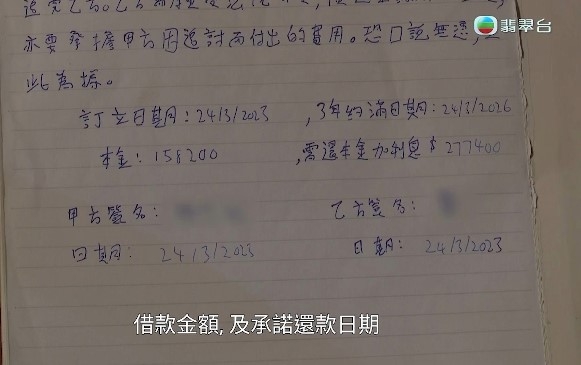 翡翠台
亦要承擔甲方用追討而付出的費用。恐口說無憑,
此為據。
訂立日期:24/3/2023 ,3年約滿日期:24/3/2026
本金:158200 ,需還本金加利息$277400
甲方簽名: 乙方簽名:
日期: 24/3/2023 日期: 24/3/2023
借款金額, 及承諾還款日期